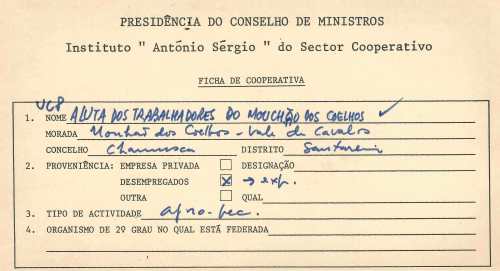 PRESIDÊNCIA DO CONSELHO DE MINISTROS
Instituto " António Sérgio " do Sector Cooperativo
FICHA DE COOPERATIVA
UCP
1. NOME A LUTA DOS TRABALHADORES DO MOUCHÃO DOS COELHOS
MORADA Mouchão dos Coelhos - Vale de Cavalos
CONCELHO Chamusca DISTRITO Santarém
2. PROVENIÊNCIA: EMPRESA PRIVADA DESIGNAÇÃO
DESEMPREGADOS X → exp.
OUTRA QUAL
3. TIPO DE ACTIVIDADE agro-pec.
4. ORGANISMO DE 2º GRAU NO QUAL ESTÁ FEDERADA